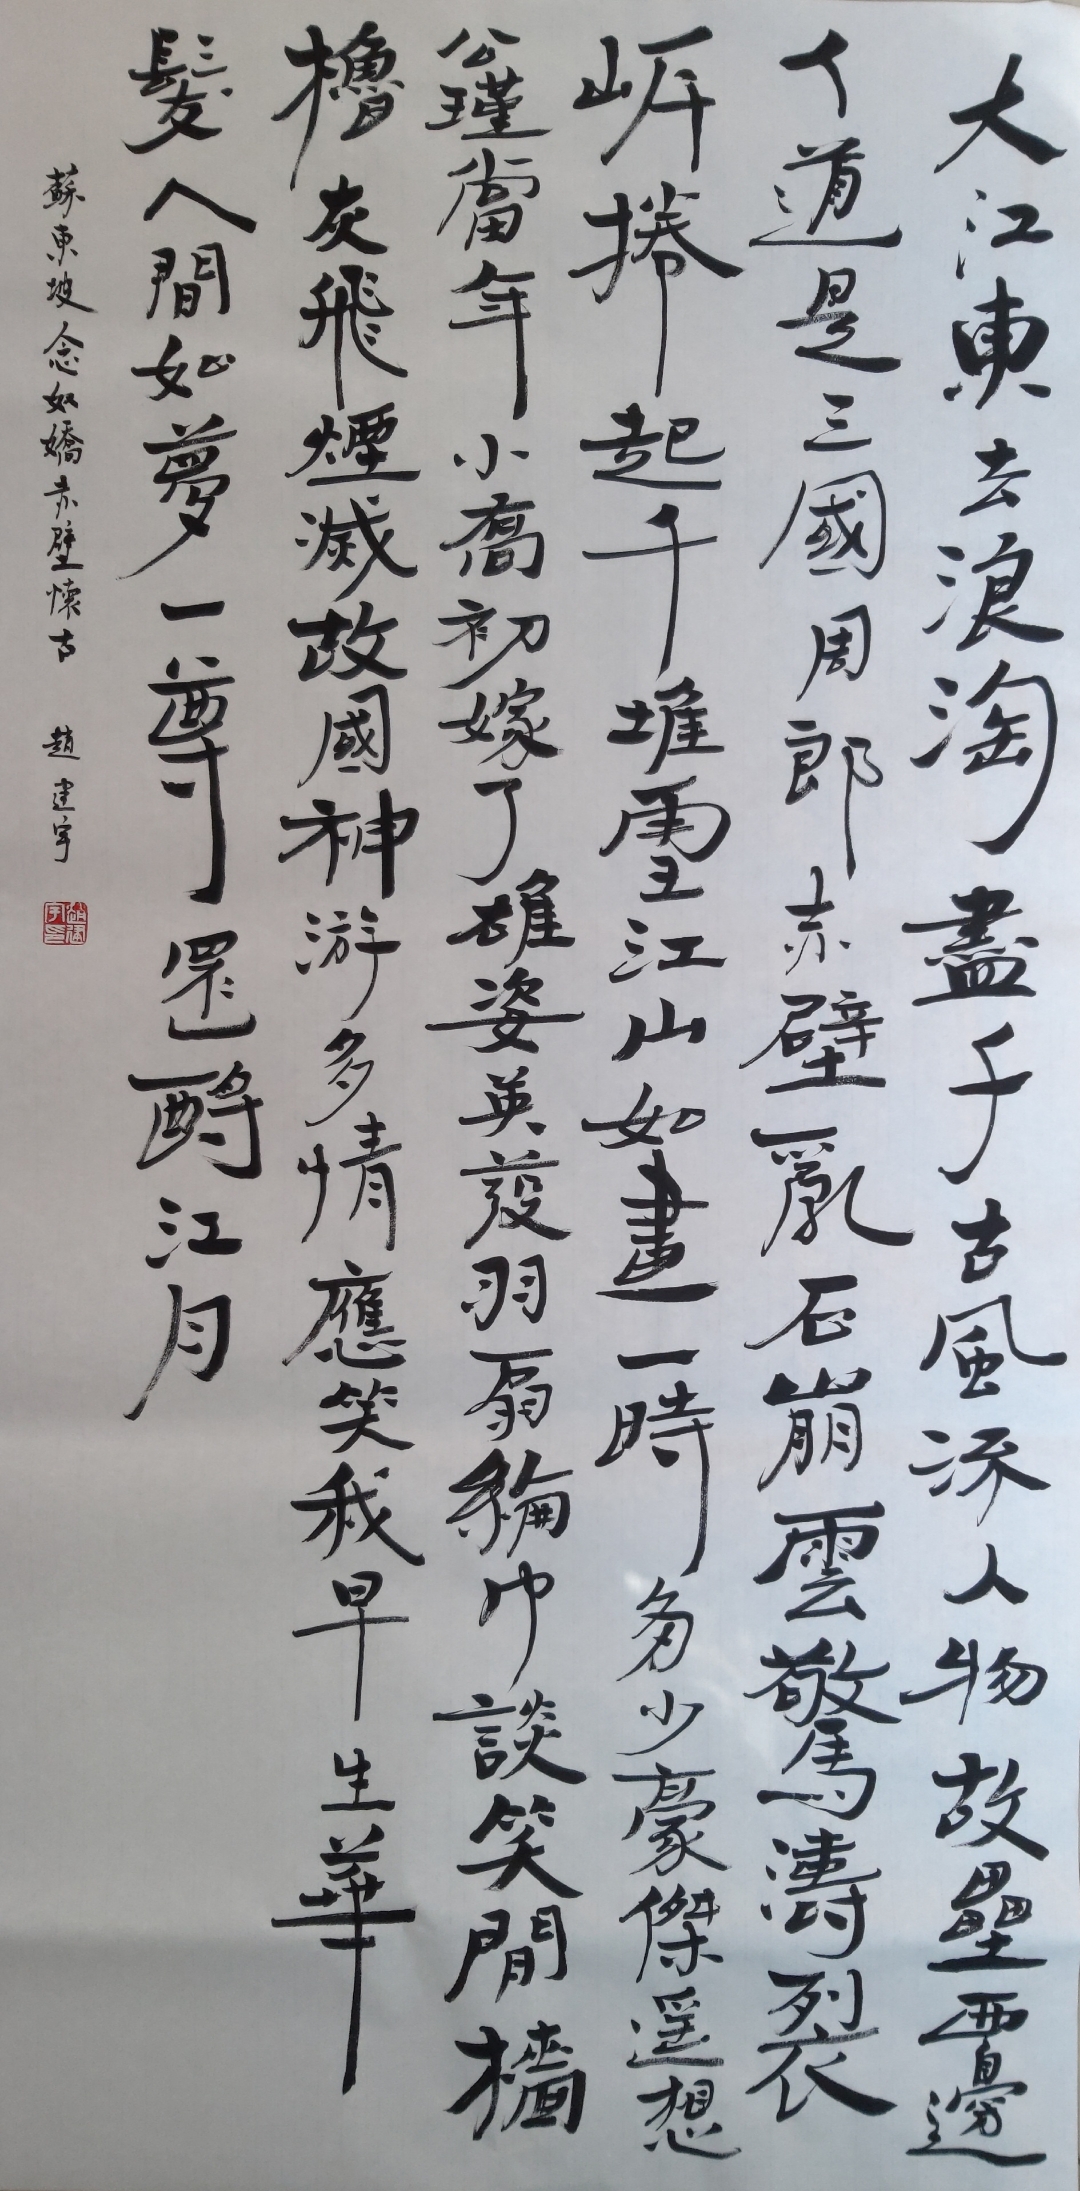 大江東去浪淘盡千古風流人物故壘西邊
人道是三國周郎赤壁亂石崩雲驚濤裂
岸捲起千堆雪江山如畫一時多少豪傑遥想
公瑾當年小喬初嫁了雄姿英發羽扇綸巾談笑間檣
櫓灰飛煙滅故國神游多情應笑我早生華
髮人間如夢一尊還酹江月
蘇東坡念奴嬌赤壁懷古 趙建宇
趙建宇印